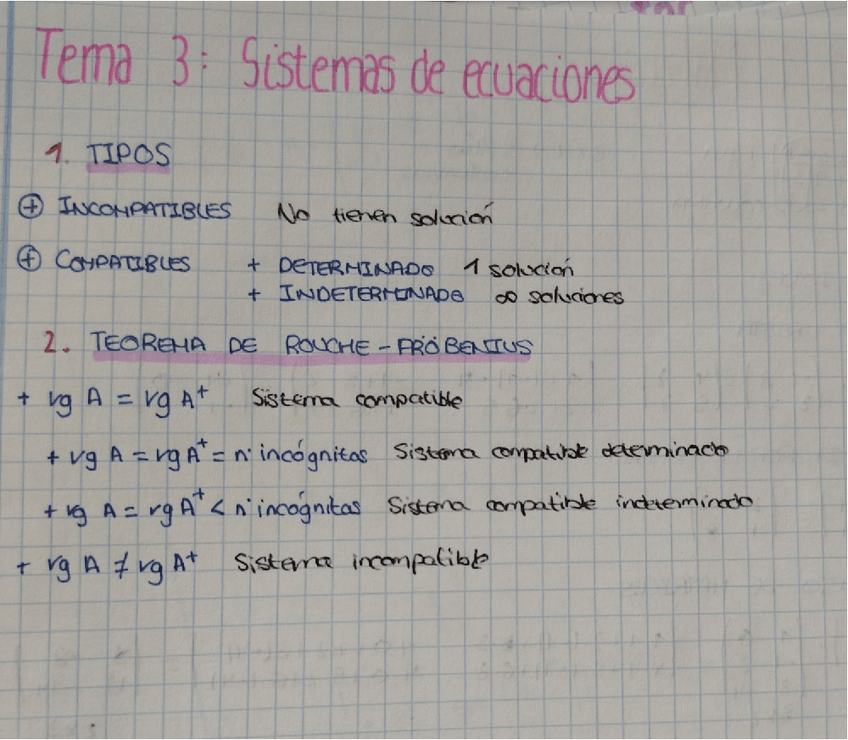 Tema 3: Sistemas de ecuaciones
1. TIPOS
⊕ INCOMPATIBLES No tienen solución
⊕ COMPATIBLES + DETERMINADO 1 solución
+ INDETERMINADO ∞ soluciones
2. TEOREMA DE ROUCHE-FRÖBENIUS
+ rg A = rg A⁺ Sistema compatible
+ rg A = rg A⁺ = nº incógnitas Sistema compatible determinado
+ rg A = rg A⁺ < nº incógnitas Sistema compatible indeterminado
+ rg A ≠ rg A⁺ Sistema incompatible